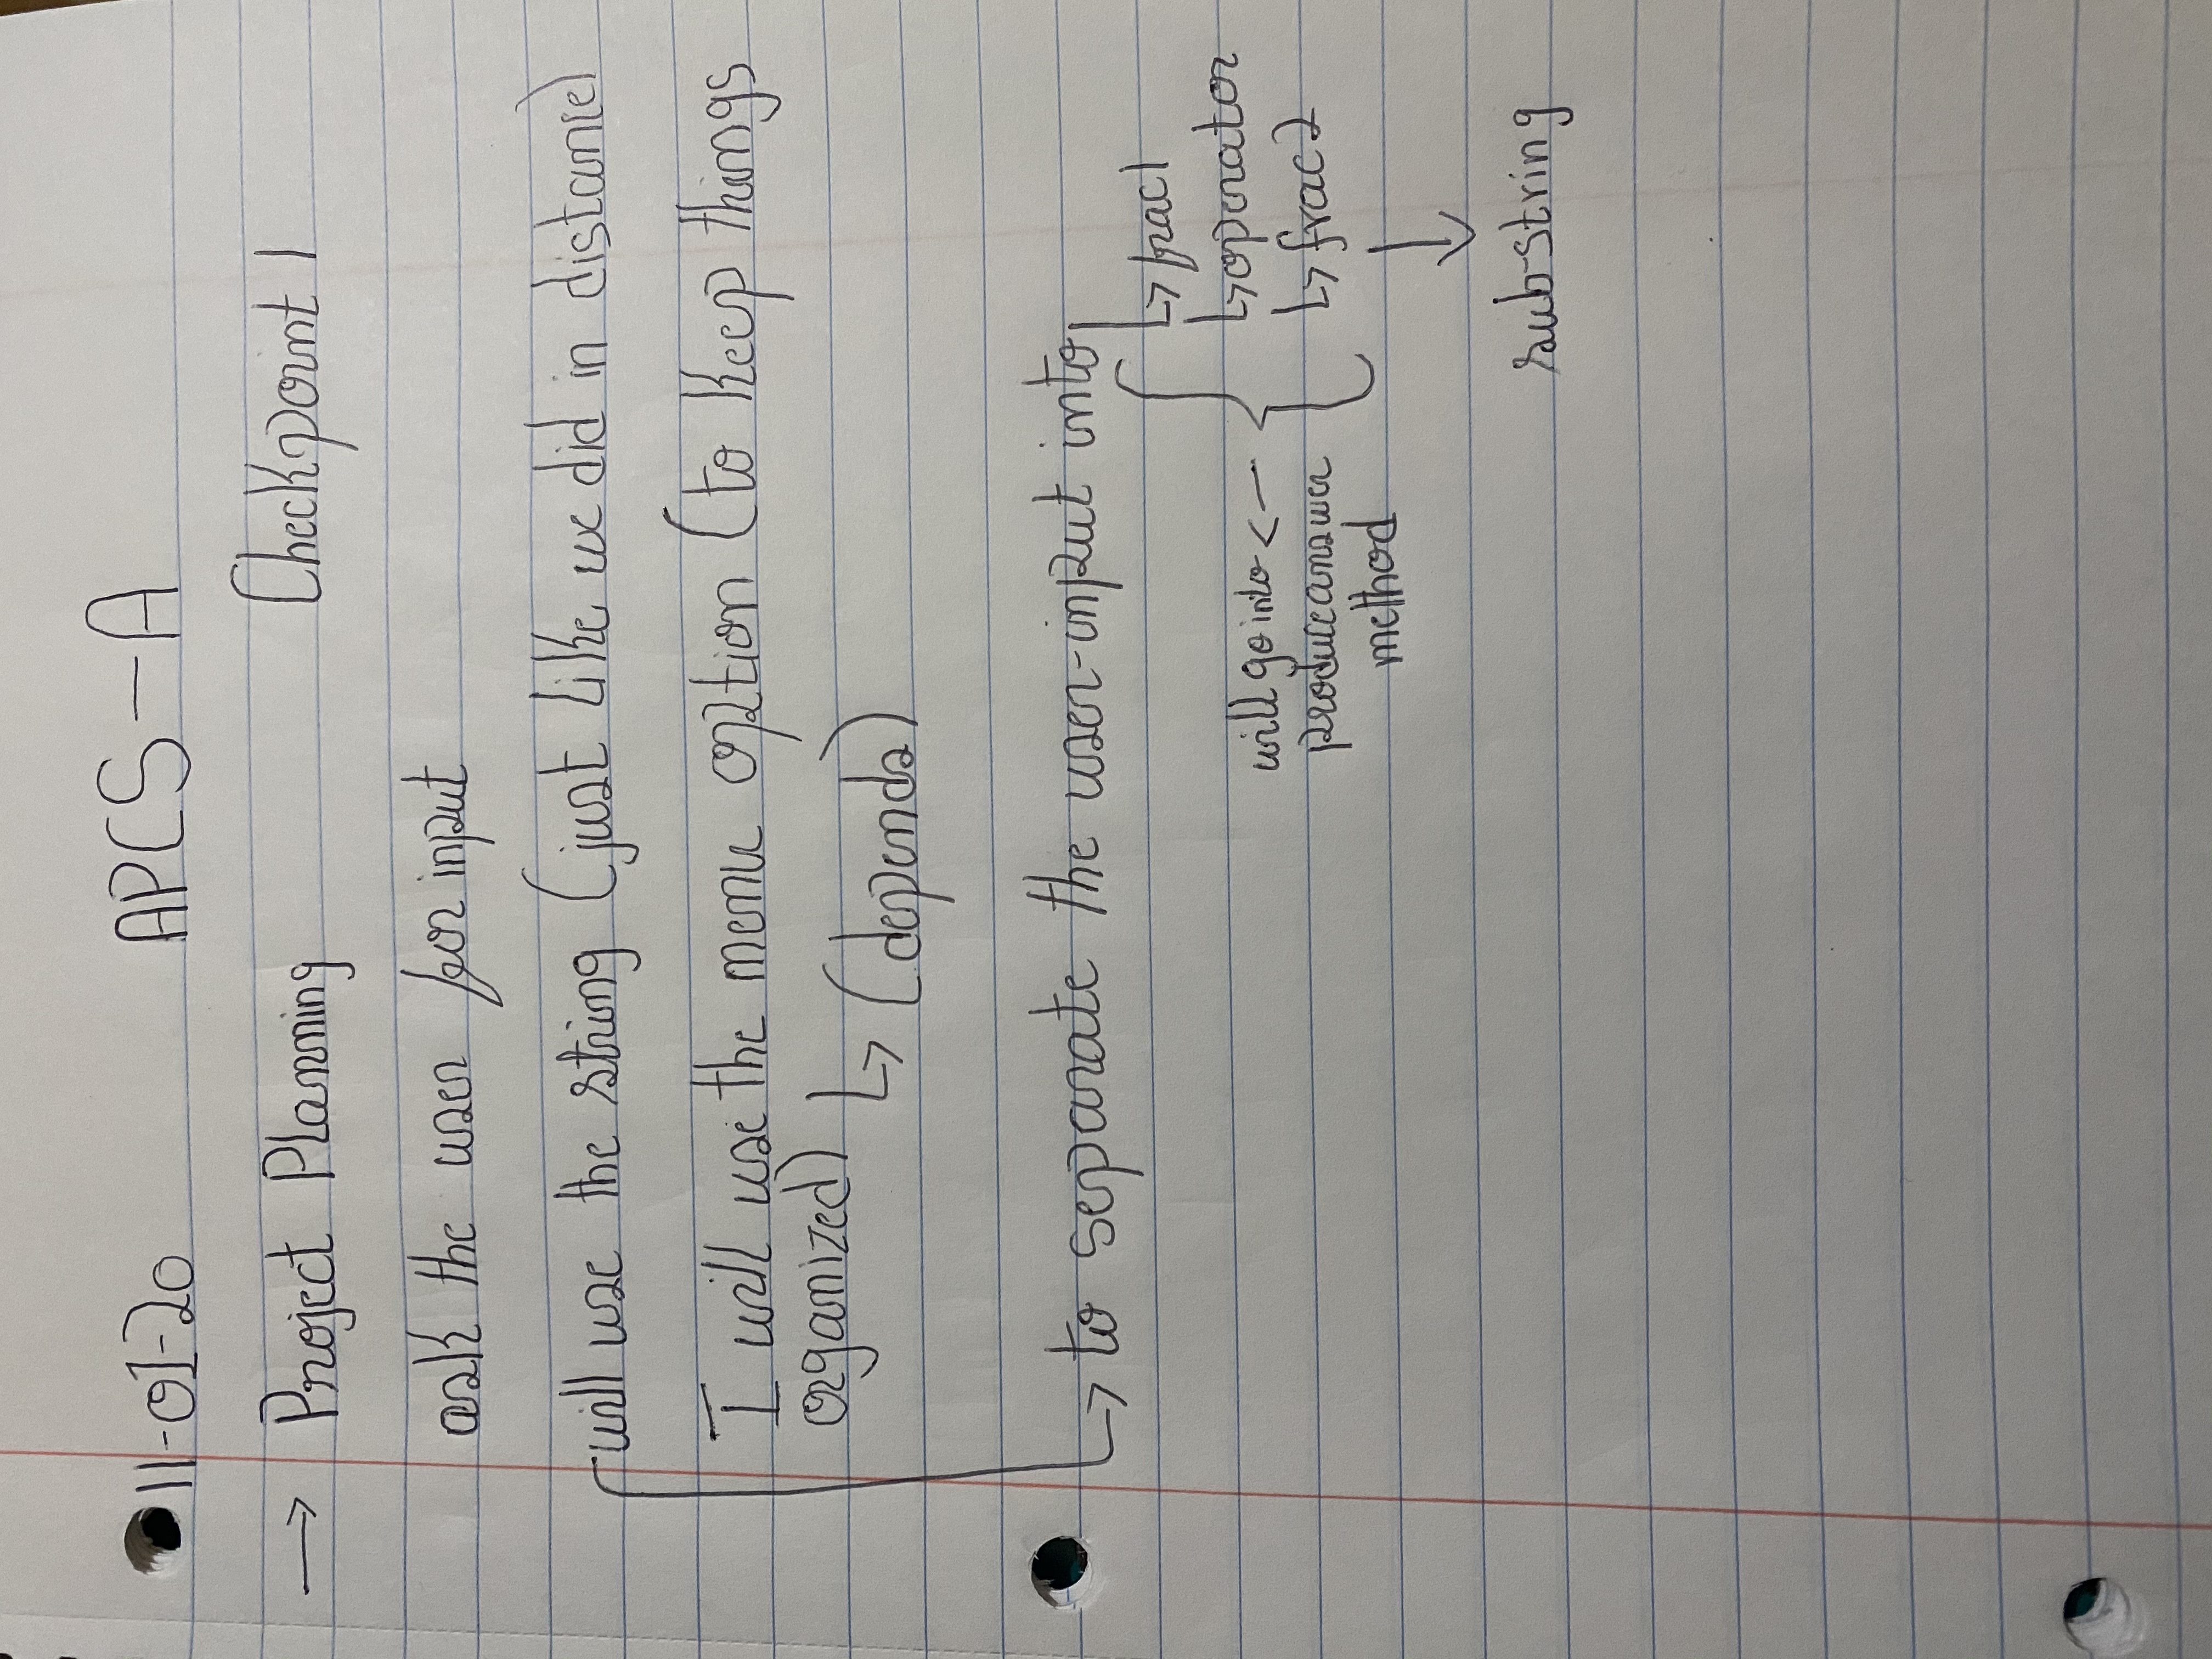 11-01-20 APCS-A
→ Project Planning Checkpoint 1
ask the user for input
will use the string (just like we did in distance)
I will use the menu option (to keep things
organized) ↳ (depends)
↳ to separate the user-input into
↳ frac1
↳ operator
↳ frac2
will go into <-
produceanswer
method
↓
sub-string